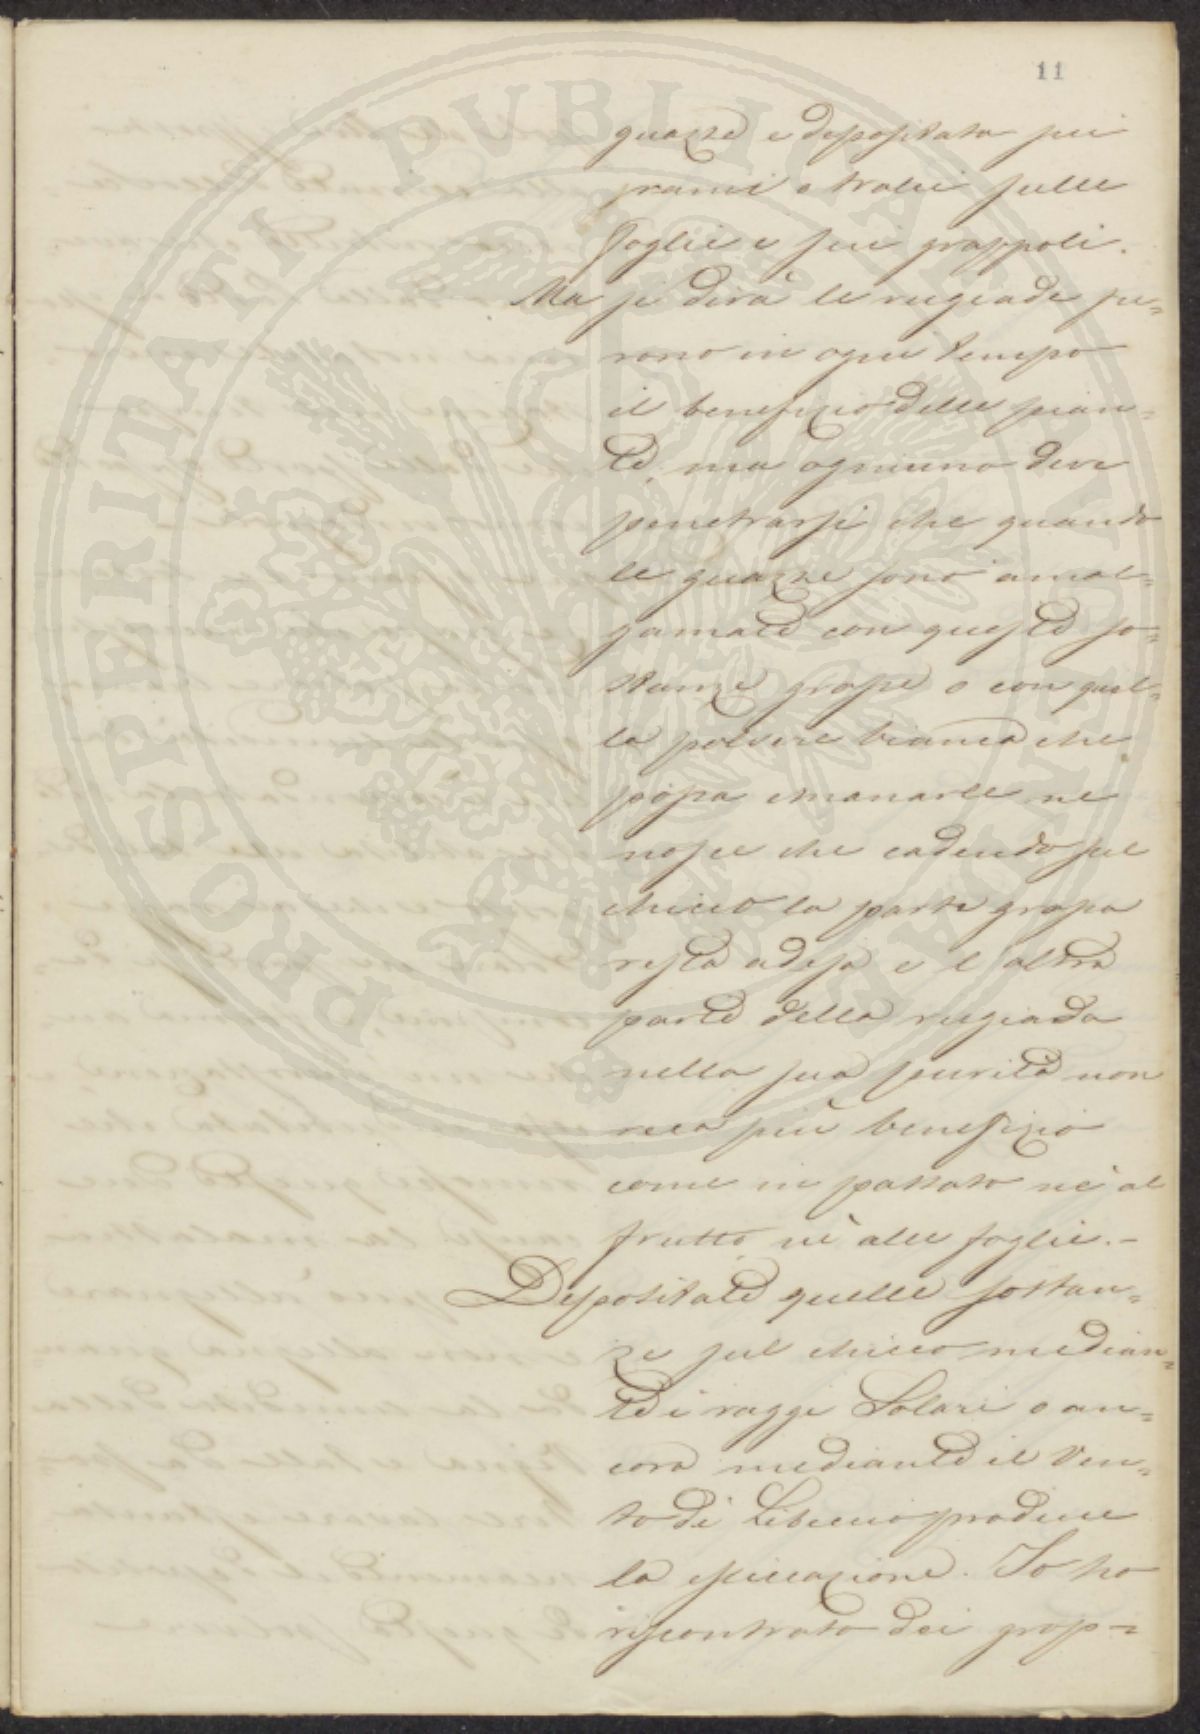 11
guazze e depositata sui
rami e tralci sulle
foglie e sui grappoli.
Ma si dirà le rugiade fu=
rono in ogni tempo
il benefizio delle pian=
te, ma ogniuno deve
penetrarsi che quando
le guazze sono amal=
gamate con queste so=
stanze grasse o con quel=
la polvere bianca che
possa emanarle ne
nasce che cadendo sul
chicco la parte grassa
resta adesa e l'altra
parte della rugiada
nella sua purità non
reca più benefizio
come in passato nè al
frutto nè alle foglie.-
Depositate quelle sostan=
ze sul chicco median=
te i raggi Solari o an=
cora mediante il Ven=
to di Libeccio produce
la essiccazione. Io ho
riscontrato dei grap=
PROSPERITATI PUBLICAE AUGENDAE